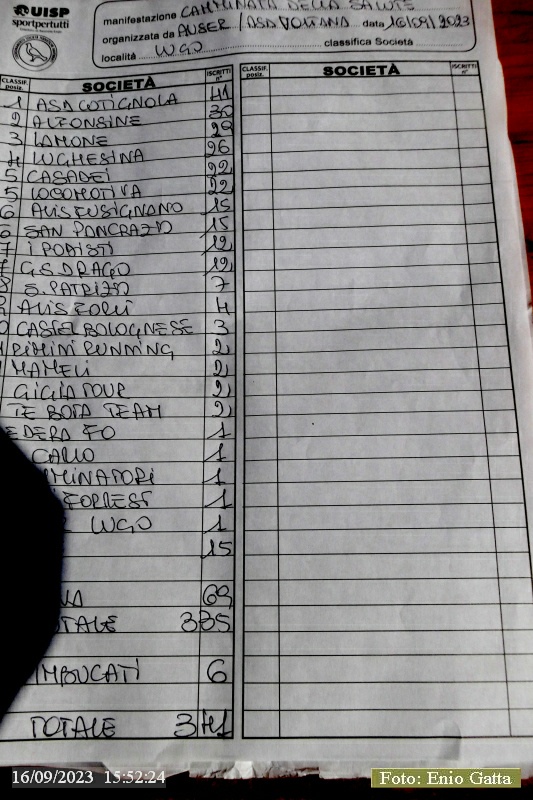 UISP
sportpertutti
manifestazione CAMMINATA DELLA SALUTE
organizzata da AUSER / ASA VOLTANA data 16/09/2023
località LUGO classifica Società
CLASSIF. posiz. SOCIETÀ ISCRITTI n° CLASSIF. posiz. SOCIETÀ ISCRITTI n°
1 ASA COTIGNOLA 41
2 ALFONSINE
3 LAMONE
4 LUGHESINA 26
5 CASADEI 22
5 LOCOMOTIVA 22
6 AVIS FUSIGNANO 15
6 SAN PANCRAZIO 15
7 I PODISTI 12
7 G.S. DRAGO 12
8 S. PATRIZIO 7
AVIS FORLI 4
CASTEL BOLOGNESE 3
RIMINI RUNNING 2
MAMELI 2
GIGLATOUR 2
TE BOTA TEAM 2
EDERA FO 1
1
MINATORI 1
FORREST 1
LUGO 1
15
69
TALE 335
IMBUCATI 6
TOTALE 341
16/09/2023 15:52:24
Foto: Enio Gatta